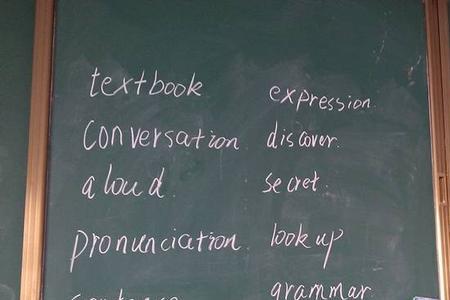 textbook
expression.
conversation.
discover.
aloud.
secret.
pronunciation.
look up
grammar